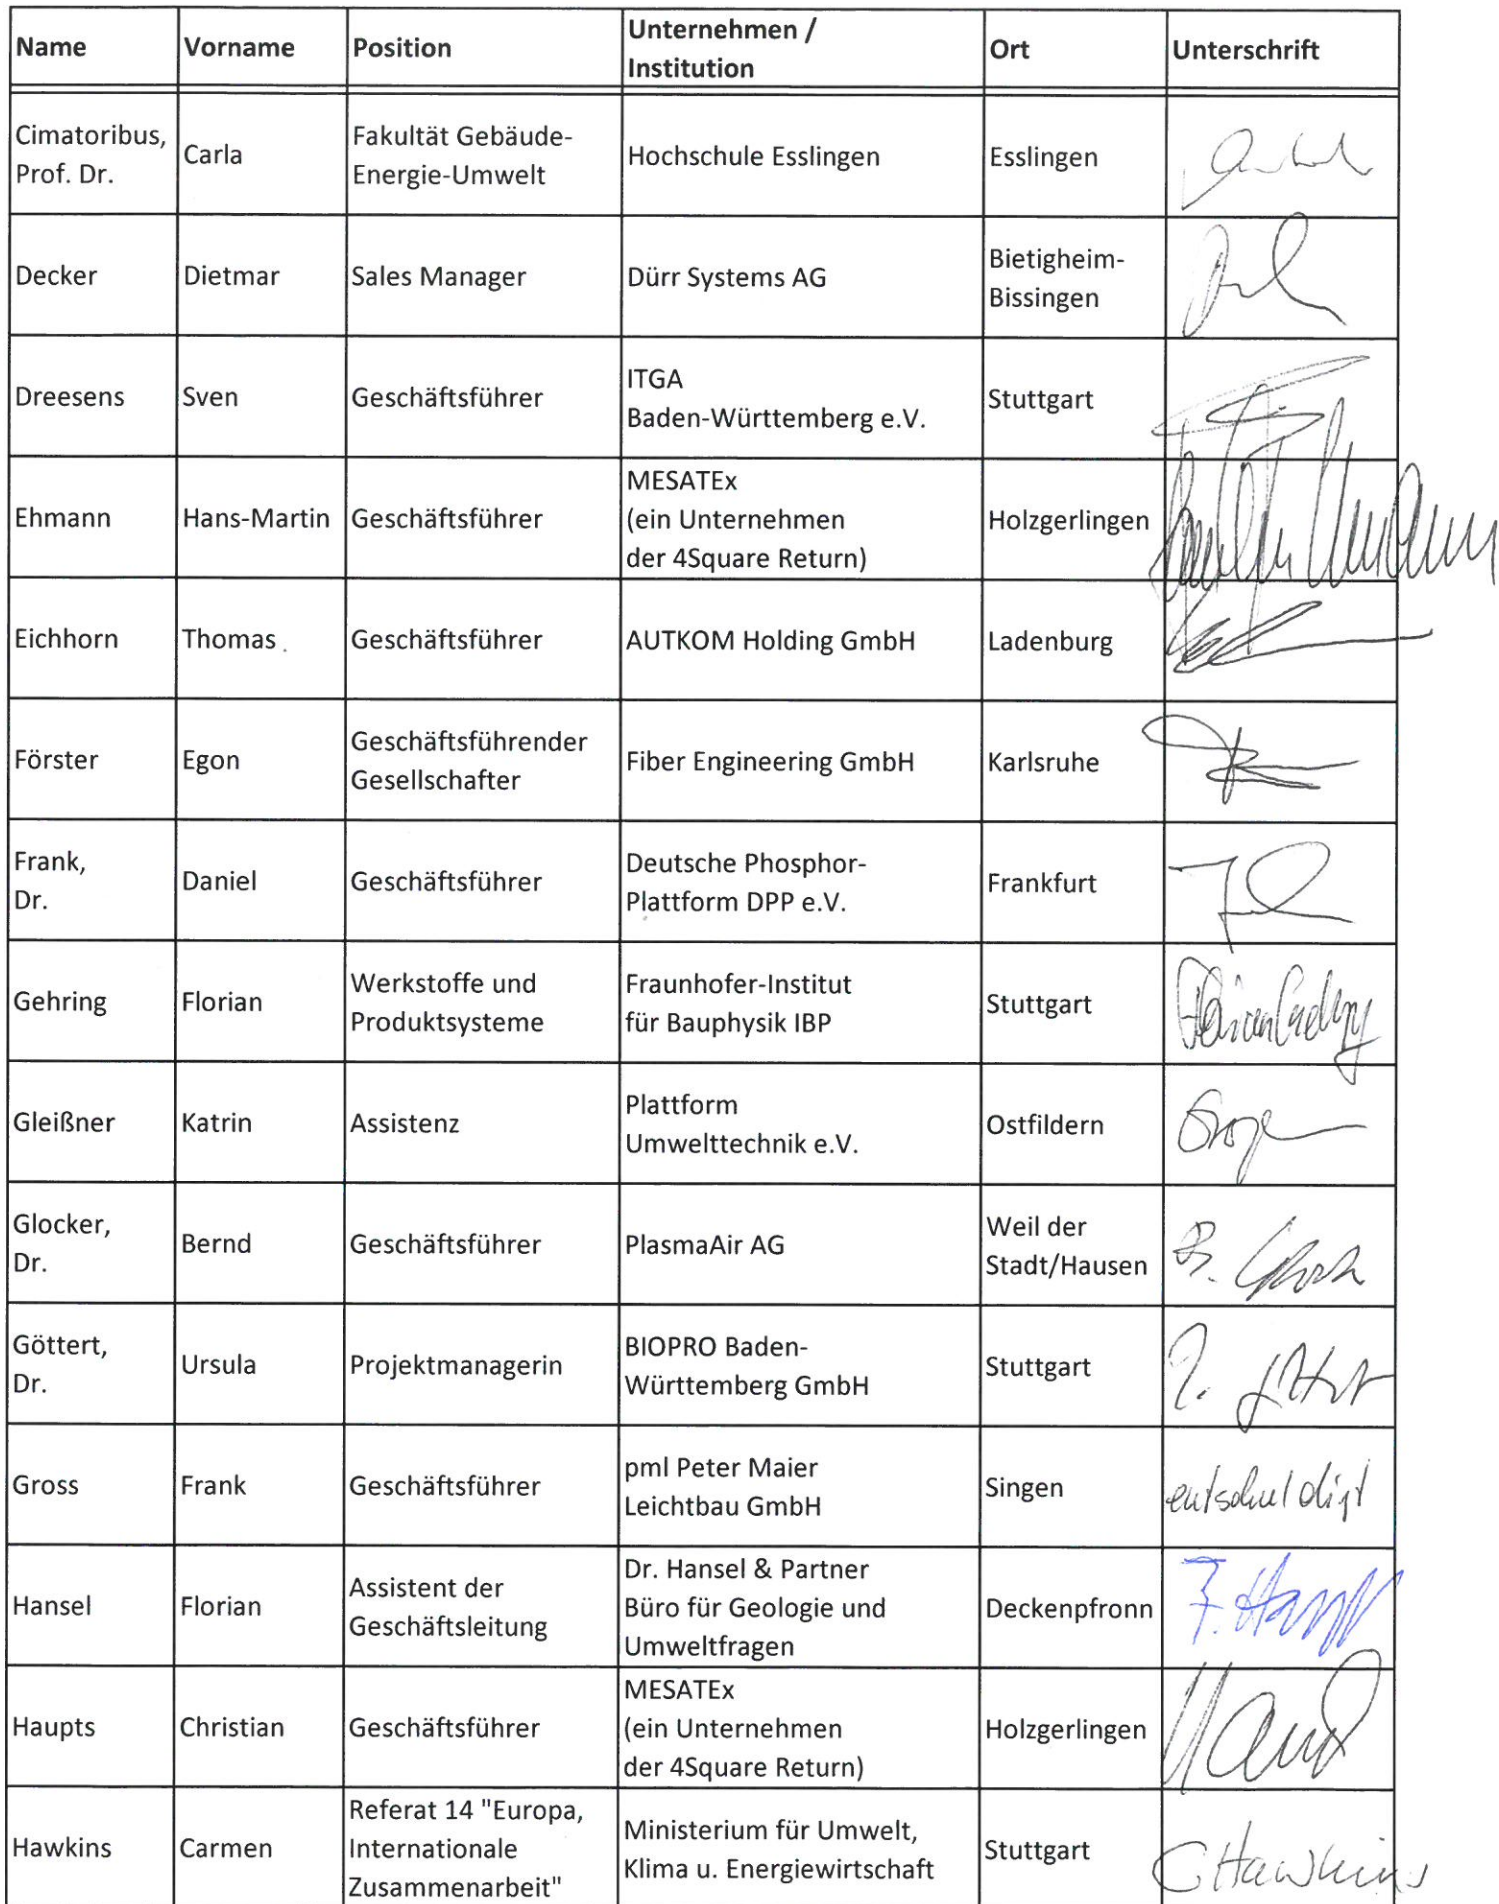 Name Vorname Position Unternehmen / Institution Ort Unterschrift
Cimatoribus, Prof. Dr. Carla Fakultät Gebäude-Energie-Umwelt Hochschule Esslingen Esslingen
Decker Dietmar Sales Manager Dürr Systems AG Bietigheim-Bissingen
Dreesens Sven Geschäftsführer ITGA Baden-Württemberg e.V. Stuttgart
Ehmann Hans-Martin Geschäftsführer MESATEx (ein Unternehmen der 4Square Return) Holzgerlingen
Eichhorn Thomas Geschäftsführer AUTKOM Holding GmbH Ladenburg
Förster Egon Geschäftsführender Gesellschafter Fiber Engineering GmbH Karlsruhe
Frank, Dr. Daniel Geschäftsführer Deutsche Phosphor-Plattform DPP e.V. Frankfurt
Gehring Florian Werkstoffe und Produktsysteme Fraunhofer-Institut für Bauphysik IBP Stuttgart
Gleißner Katrin Assistenz Plattform Umwelttechnik e.V. Ostfildern
Glocker, Dr. Bernd Geschäftsführer PlasmaAir AG Weil der Stadt/Hausen
Göttert, Dr. Ursula Projektmanagerin BIOPRO Baden-Württemberg GmbH Stuttgart
Gross Frank Geschäftsführer pml Peter Maier Leichtbau GmbH Singen entschuldigt
Hansel Florian Assistent der Geschäftsleitung Dr. Hansel & Partner Büro für Geologie und Umweltfragen Deckenpfronn
Haupts Christian Geschäftsführer MESATEx (ein Unternehmen der 4Square Return) Holzgerlingen
Hawkins Carmen Referat 14 "Europa, Internationale Zusammenarbeit" Ministerium für Umwelt, Klima u. Energiewirtschaft Stuttgart CHawkins